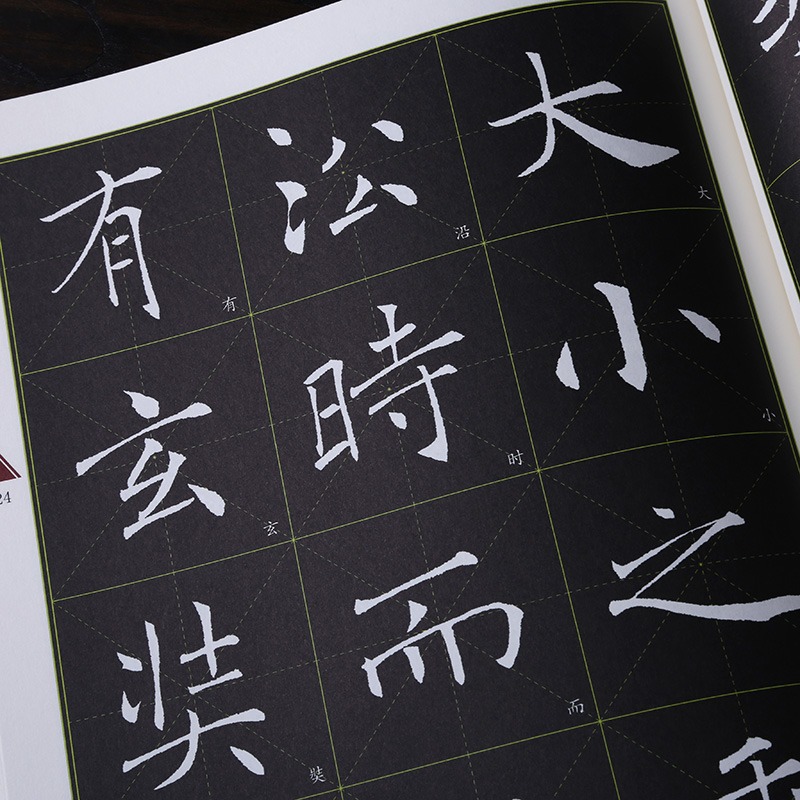 大
大
小
小
之
㳂
沿
時
时
而
而
有
有
玄
玄
奘
奘
24